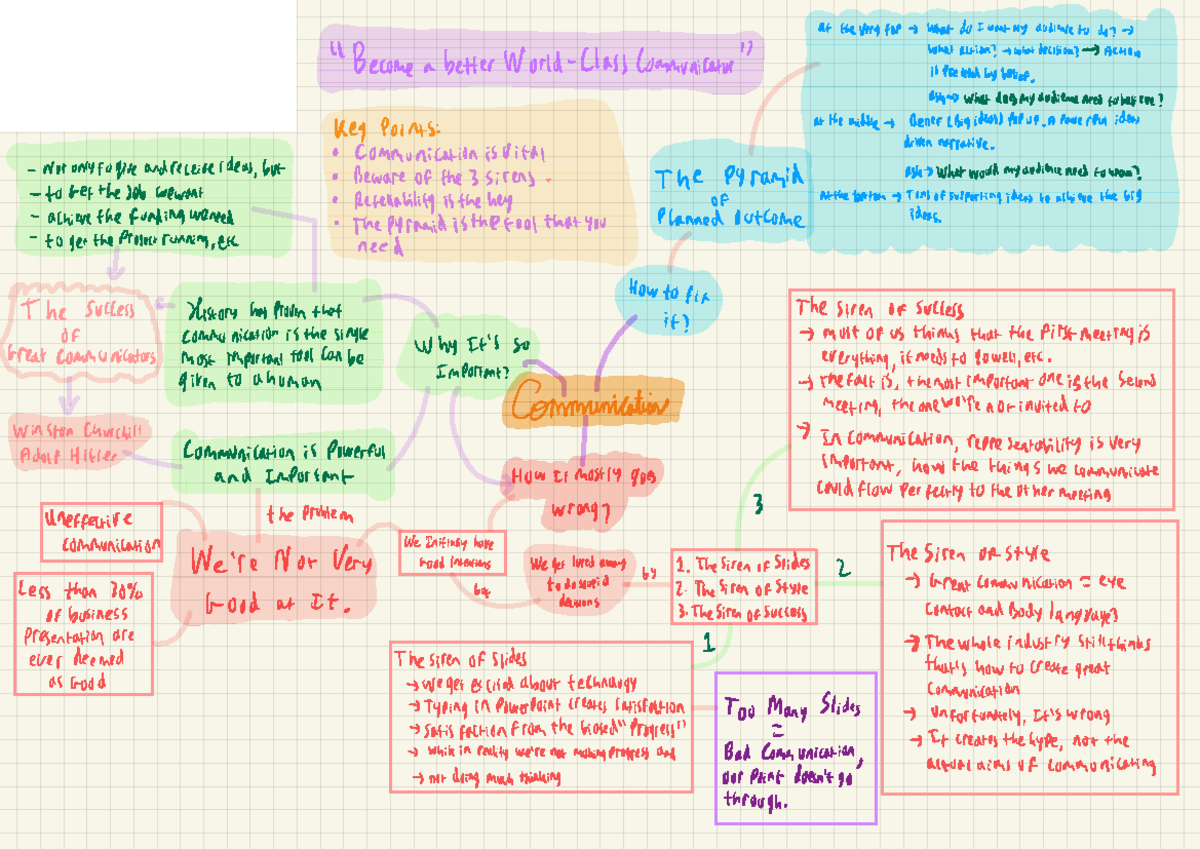 "Become a better World-Class Communicator"
Key Points:
• Communication is Vital
• Beware of the 3 sirens
• Repeatability is the key
• The Pyramid is the tool that you
need
At the very top → What do I want my audience to do? →
What action? → what decision? → Action
is preceded by belief.
Ask → What does my audience need to believe?
At the middle → (big ideas) pop up. A powerful ideas
driven narrative.
Ask → What would my audience need to know?
At the bottom → Tons of supporting ideas to achieve the big
ideas.
The Pyramid
of
Planned Outcome
How to fix
it?
- Not only to give and receive ideas, but
- to get the Job we want
- achieve the funding we need
- to get the Project running, etc
The Success
of
Great Communicators
History has proven that
communication is the single
most important tool can be
given to a human
Why It's so
Important?
Communication
Winston Churchill
Adolf Hitler
Communication is Powerful
and Important
How It mostly goes
wrong?
the problem
Uneffective
communication
We're Not Very
Good at It.
Less than 30%
of business
Presentation are
ever deemed
as Good
We Initially have
Good intentions
but
We get lured away
to do stupid
decisions
by
1. The Siren of Slides
2. The Siren of Style
3. The Siren of Success
3
2
1
The Siren of Success
→ most of us things that the first meeting is
everything, it needs to go well, etc.
→ The fact is, the most important one is the second
meeting, the one we're not invited to
→ In communication, repeatability is very
important, how the things we communicate
could flow perfectly to the other meeting
The Siren of Style
→ Great communication = eye
contact and Body language?
→ The whole industry still thinks
that's how to create great
communication
→ Unfortunately, It's wrong
→ It creates the hype, not the
actual aims of communicating
The Siren of Slides
→ We get excited about technology
→ Typing in PowerPoint creates satisfaction
→ Satisfaction from the biased "Progress"
→ While in reality we're not making progress and
→ not doing much thinking
Too Many Slides
=
Bad Communication,
our Point doesn't go
through.